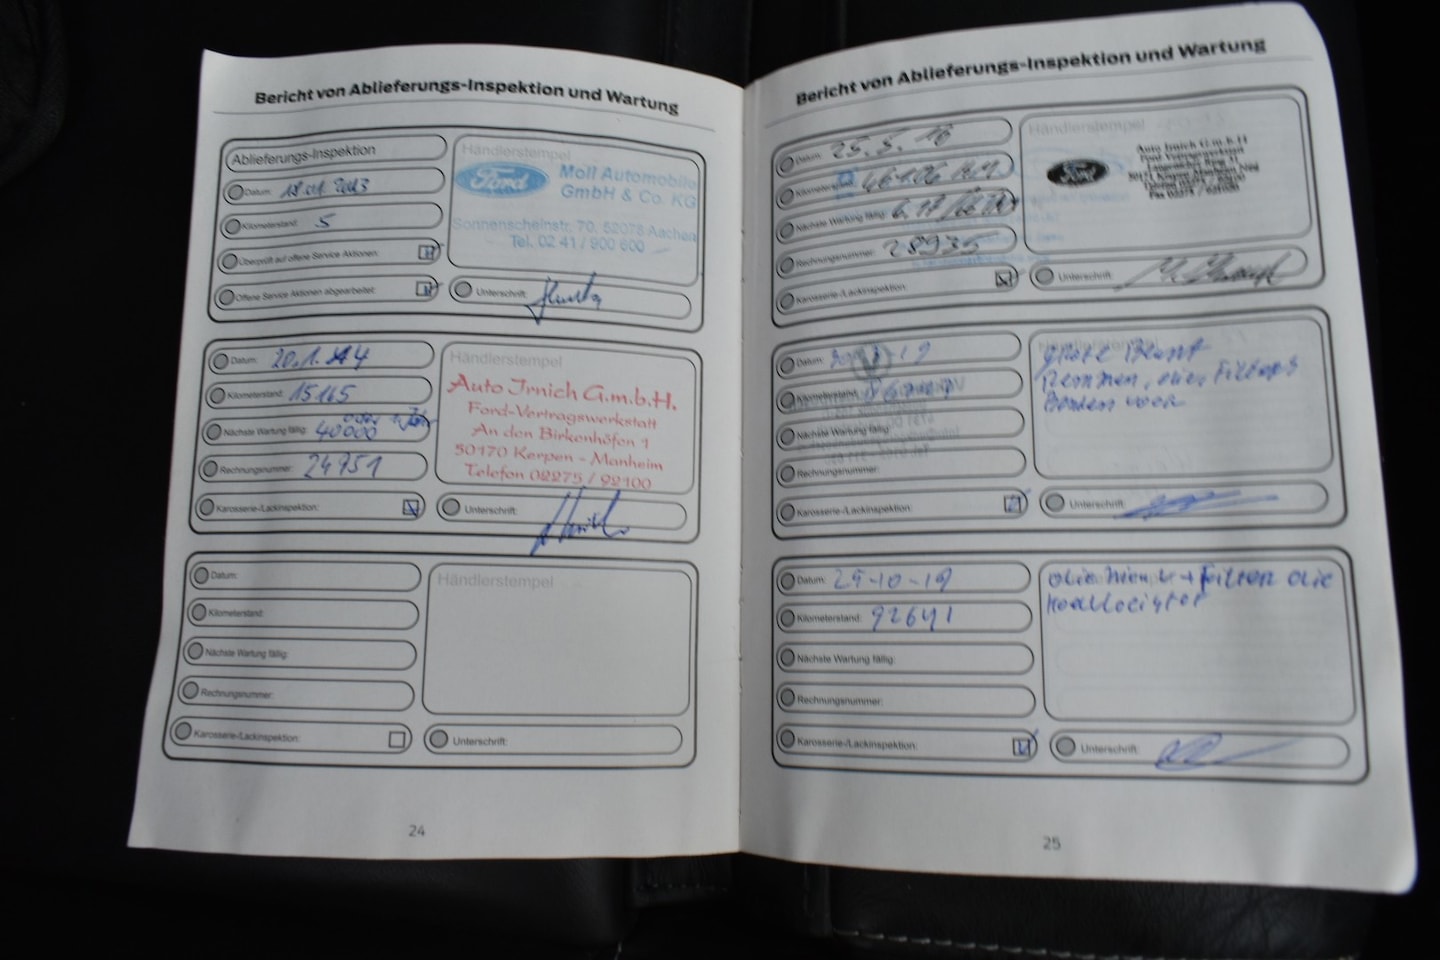 Bericht von Ablieferungs-Inspektion und Wartung
Ablieferungs-Inspektion
Datum: 18.01.2013
Kilometerstand: 5
Überprüft auf offene Service Aktionen:
Offene Service Aktionen abgearbeitet:
Händlerstempel
Ford
Moll Automobile
GmbH & Co. KG
Sonnenscheinstr. 70, 52078 Aachen
Tel. 02 41 / 900 600
Unterschrift:
Datum: 20.1.14
Kilometerstand: 15165
Nächste Wartung fällig: 40000 oder 1 Jahr
Rechnungsnummer: 24951
Karosserie-/Lackinspektion:
Händlerstempel
Auto Irnich G.m.b.H.
Ford-Vertragswerkstatt
An den Birkenhöfen 1
50170 Kerpen - Manheim
Telefon 02275 / 92100
Unterschrift:
Datum:
Kilometerstand:
Nächste Wartung fällig:
Rechnungsnummer:
Karosserie-/Lackinspektion:
Händlerstempel
Unterschrift:
24
Bericht von Ablieferungs-Inspektion und Wartung
Datum: 25.5.16
Kilometerstand:
Nächste Wartung fällig:
Rechnungsnummer: 28935
Karosserie-/Lackinspektion:
Händlerstempel
Ford
Auto Irnich G.m.b.H
Unterschrift:
Datum:
Kilometerstand:
Nächste Wartung fällig:
Rechnungsnummer:
Karosserie-/Lackinspektion:
grote Beurt
Remmen, olie, Filters
Banden voor
Unterschrift:
Datum: 25-10-19
Kilometerstand: 92641
Nächste Wartung fällig:
Rechnungsnummer:
Karosserie-/Lackinspektion:
olie + Filter olie
Unterschrift:
25